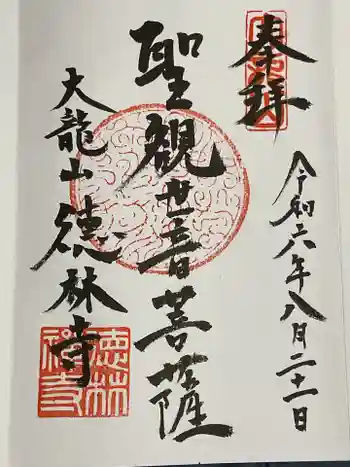 奉拝
令和六年八月二十一日
聖観世音菩薩
大龍山徳林寺